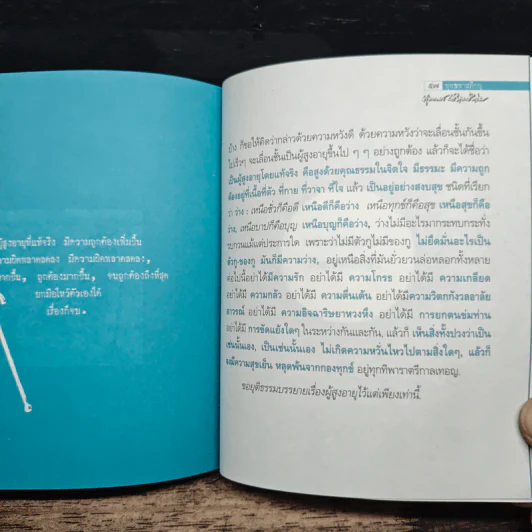 ผู้สูงอายุที่แท้จริง มีความถูกต้องเพิ่มขึ้น
มีความผิดพลาดลดลง,
ถูกต้องมากขึ้น, จนถูกต้องถึงที่สุด
ยกมือไหว้ตัวเองได้
เรื่องก็จบ.
๕๗
บ้าง ก็ขอให้คิดว่ากล่าวด้วยความหวังดี ด้วยความหวังว่าจะเลื่อนชั้นกันขึ้น
ไปเร็วๆ จะเลื่อนชั้นเป็นผู้สูงอายุขึ้นไป ๆ ๆ อย่างถูกต้อง แล้วก็จะได้ชื่อว่า
เป็นผู้สูงอายุโดยแท้จริง คือสูงด้วยคุณธรรมในจิตใจ มีธรรมะ มีความถูก
ต้องอยู่ที่เนื้อที่ตัว ที่กาย ที่วาจา ที่ใจ แล้ว เป็นอยู่อย่างสงบสุข ชนิดที่เรียก
ว่า ว่าง : เหนือชั่วก็คือดี เหนือดีก็คือว่าง เหนือทุกข์ก็คือสุข เหนือสุขก็คือ
ว่าง, เหนือบาปก็คือบุญ เหนือบุญก็คือว่าง, ว่างไม่มีอะไรมากระทบกระทั่ง
รบกวนแม้แต่ประการใด เพราะว่าไม่มีตัวกูไม่มีของกู ไม่ยึดมั่นอะไรเป็น
ตัวกู-ของกู มันก็มีความว่าง, อยู่เหนือสิ่งที่มันยั่วยวนล่อหลอกทั้งหลาย
ต่อไปนี้อย่าได้มีความรัก อย่าได้มี ความโกรธ อย่าได้มี ความเกลียด
อย่าได้มี ความกลัว อย่าได้มี ความตื่นเต้น อย่าได้มีความวิตกกังวลอาลัย
อาวรณ์ อย่าได้มี ความอิจฉาริษยาหวงหึง อย่าได้มี การยกตนข่มท่าน
อย่าได้มี การขัดแย้งใดๆ ในระหว่างกันและกัน, แล้วก็ เห็นสิ่งทั้งปวงว่าเป็น
เช่นนั้นเอง, เป็นเช่นนั้นเอง ไม่เกิดความหวั่นไหวไปตามสิ่งใดๆ, แล้วก็
จะมีความสุขเย็น หลุดพ้นจากกองทุกข์ อยู่ทุกทิพาราตรีกาลเทอญ.
ขอยุติธรรมบรรยายเรื่องผู้สูงอายุไว้แต่เพียงเท่านี้.